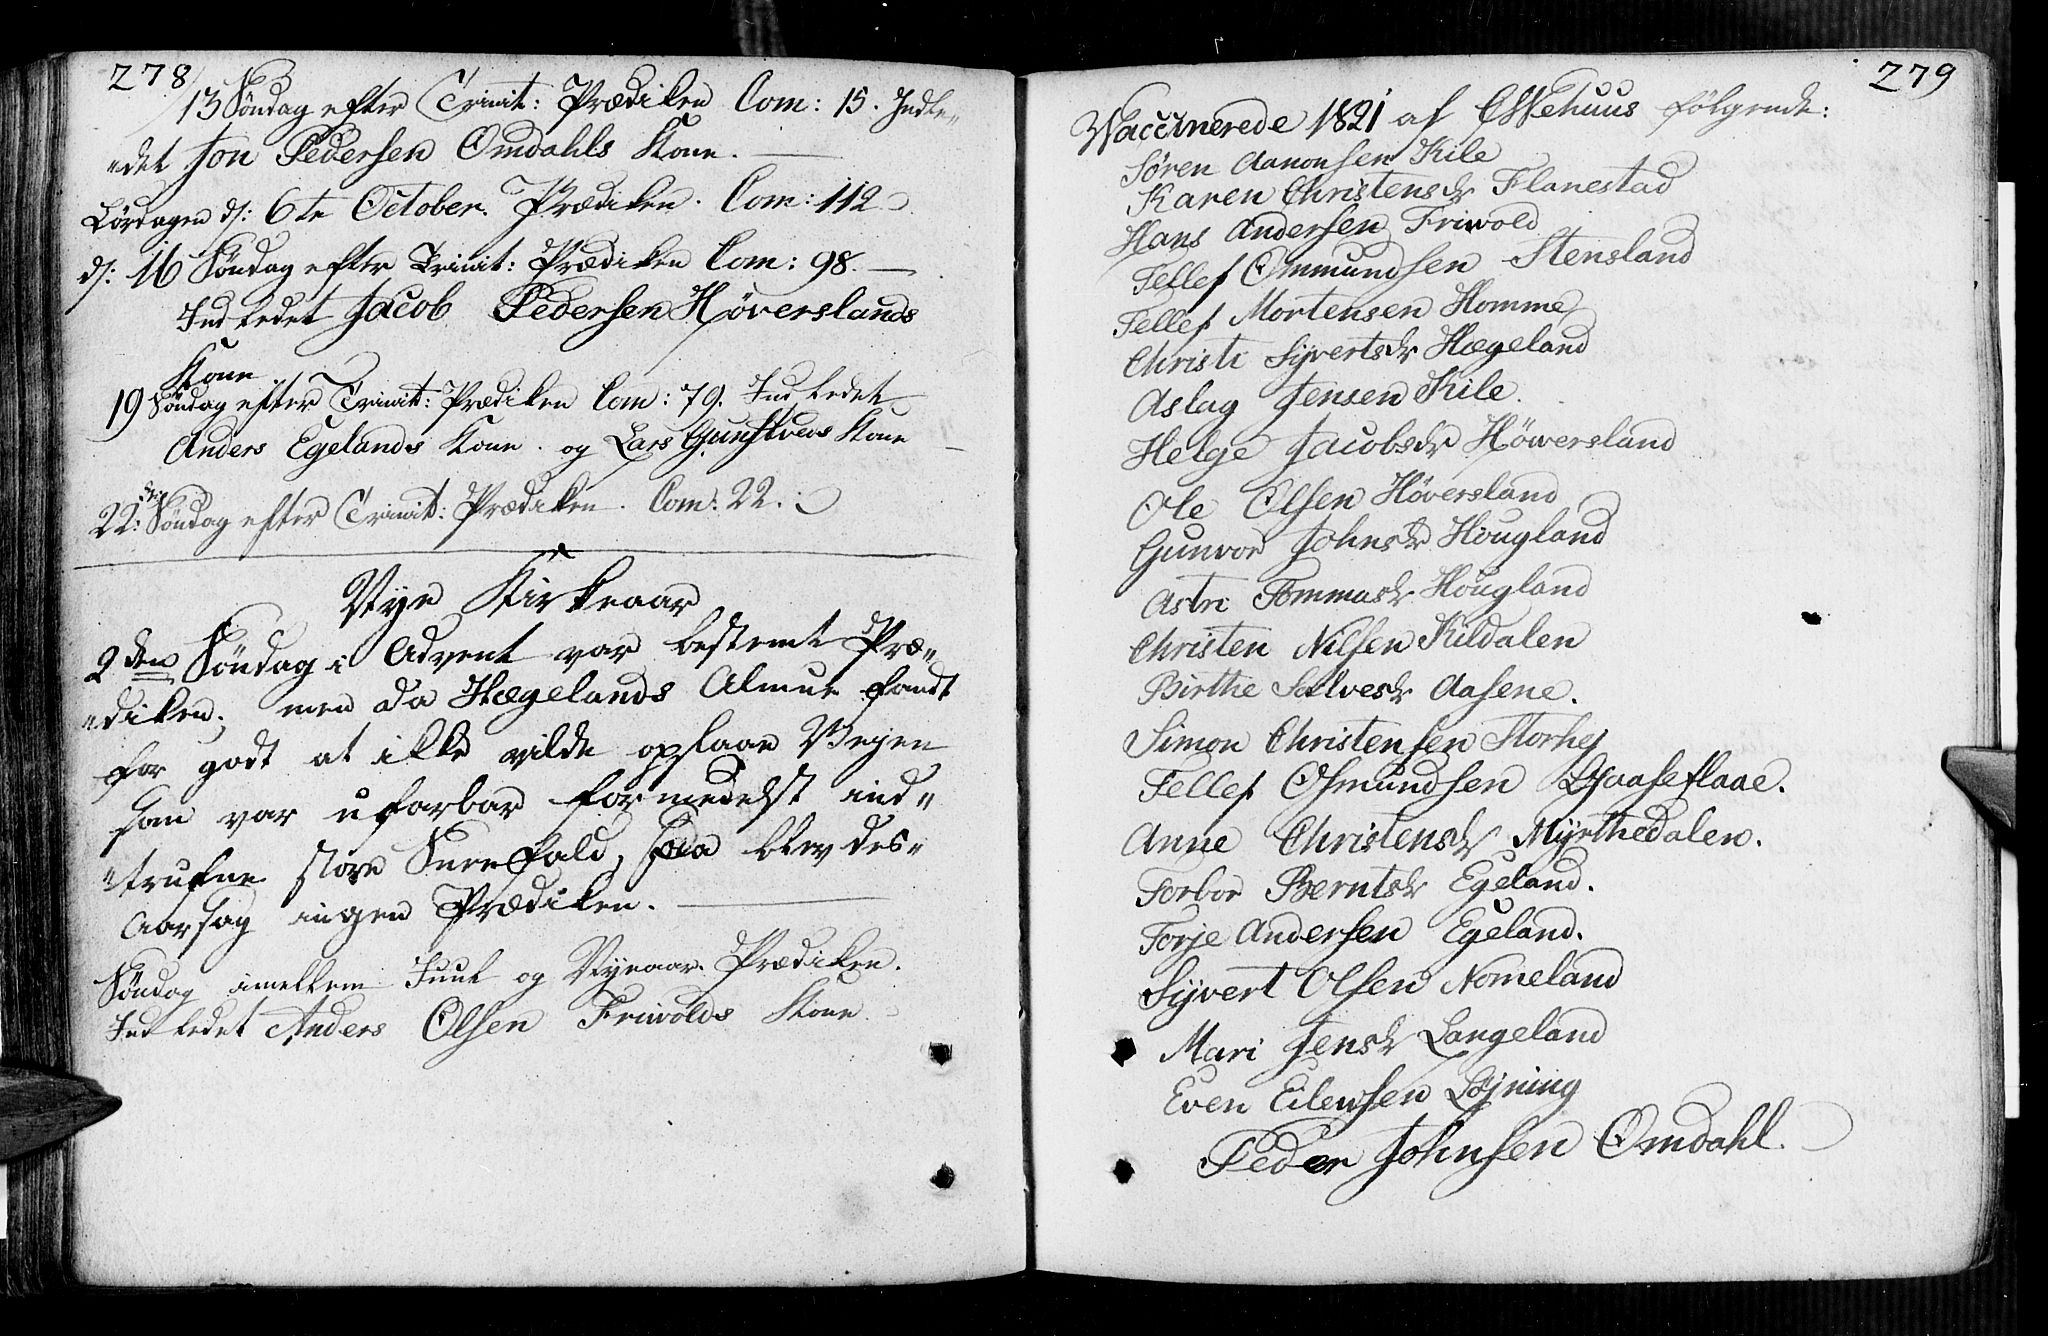 278
13 Søndag efter Trinit: Prædiken Com: 15. Indle„
„det Jon Pedersen Omdahls Kone.
Lørdagen d: 6te October. Prædiken. Com: 112
d: 16 Søndag efter Trinit: Prædiken Com: 98.
Indledet Jacob Pedersen Høverslands
Kone
19 Søndag efter Trinit: Prædiken Com: 79. Indledet
Anders Egelands Kone. og Lars Gunstveds Kone
22: Søndag efter Trinit: Prædiken. Com: 22.
Nye Kirkeaar
2den Søndag i Advent var bestemt Præ„
„diken; men da Hægelands Almue fandt
for godt at ikke vilde opslaae Vejen
som var ufarbar formedelst ind„
„trufne store Sneefald, saa blev des„
Aarsag ingen Prædiken.
Søndag imellem Juul og Nyeaar. Prædiken.
Indledet Anders Olsen Friwolds Kone.
279
Vaccinerede 1821 af Essehuus følgende:
Søren Aanonsen Kile
Karen Christensdr Flanestad
Hans Andersen Friwold
Tellef Ommundsen Stensland
Tellef Mortensen Homme
Christi Sÿvertsdr Hægeland
Aslag Jensen Kile.
Helge Jacobsdr Höwersland
Ole Olsen Höversland
Gunvor Johnsdr Hougland
Astri Tommasdr Hougland
Christen Nilsen Kildalen
Birthe Salvesdr Aasene.
Simon Christensen Storhej
Tellef Osmundsen Gaaseflaae.
Anne Christensdr Mÿrthedalen.
Torbor Berntsdr Egeland.
Torje Andersen Egeland.
Sÿvert Olsen Nomeland
Mari Jensdr Langeland
Even Eilewsen Løjning
Peder Johnsen Omdahl.